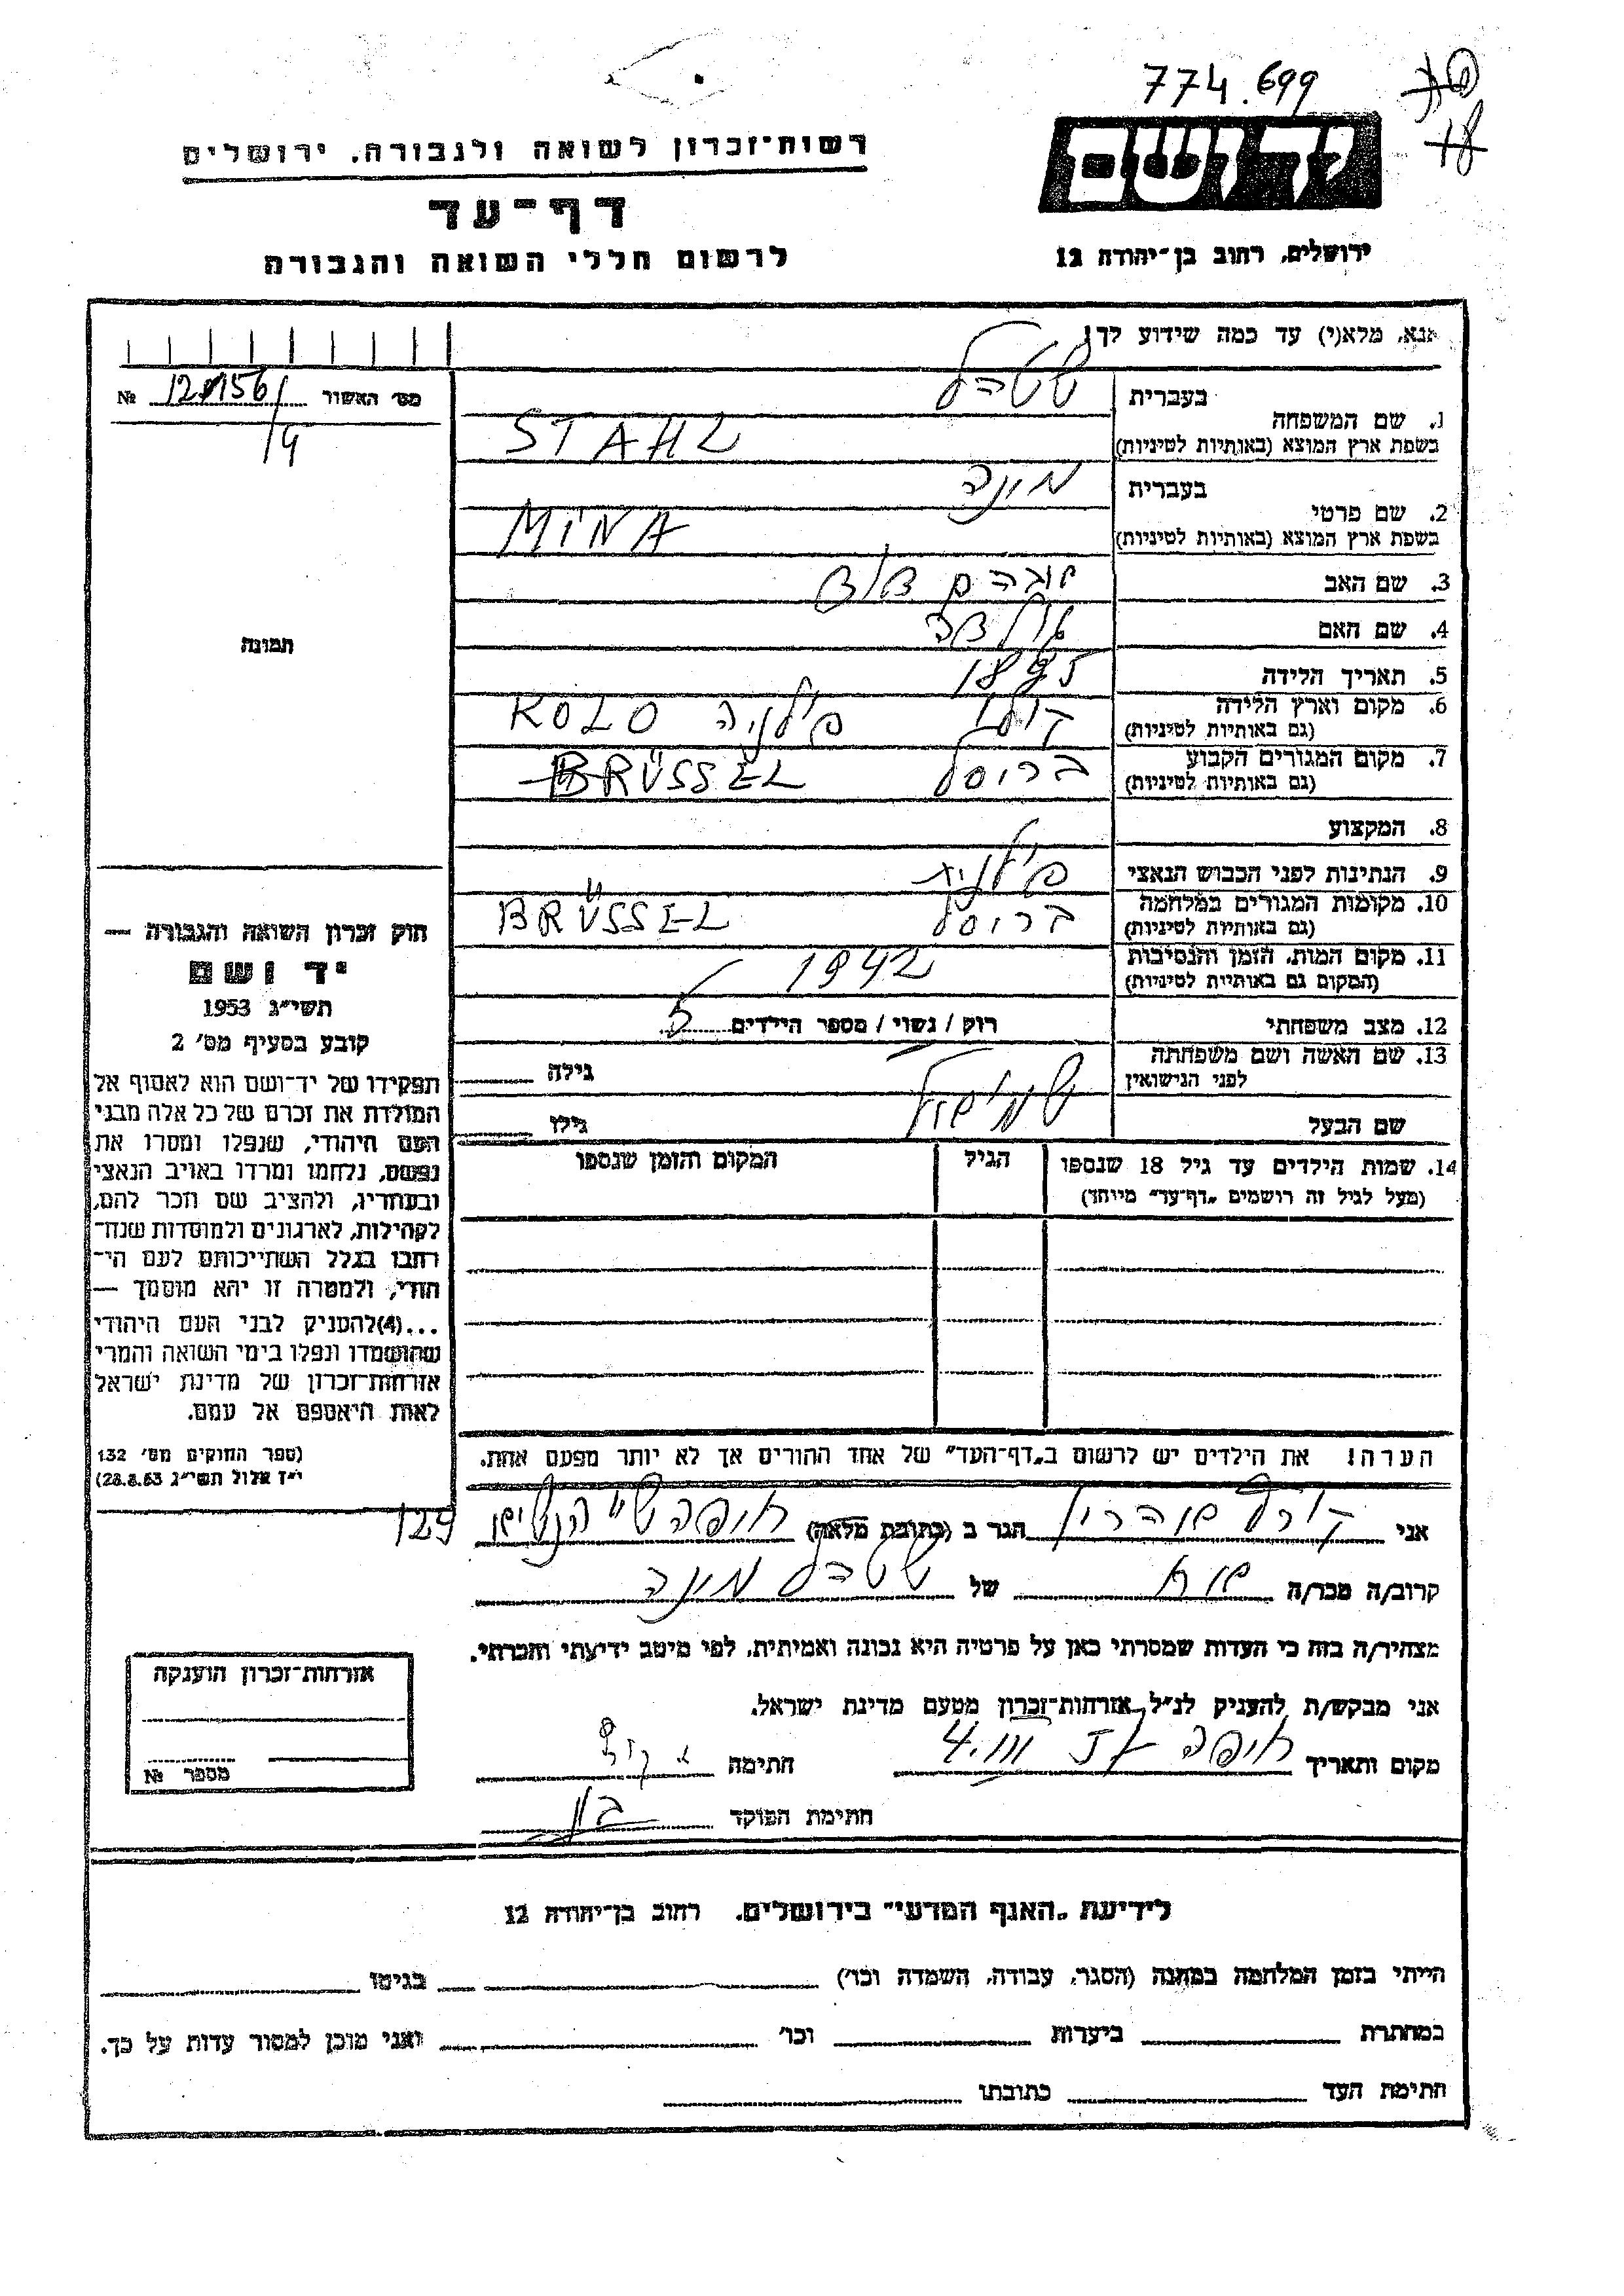 774.699
18
יד ושם
רשות־זכרון לשואה ולגבורה, ירושלים
דף־עד
לרשום חללי השואה והגבורה
ירושלים, רחוב בן־יהודה 12
אנא, מלא(י) עד כמה שידוע לך!
מס׳ האשור № 12156/
14
1. שם המשפחה
בעברית שטהל
בשפת ארץ המוצא (באותיות לטיניות) STAHL
2. שם פרטי
בעברית מינה
בשפת ארץ המוצא (באותיות לטיניות) MINA
3. שם האב אברהם
4. שם האם
5. תאריך הלידה 1895
6. מקום וארץ הלידה (גם באותיות לטיניות) קולו פולניה KOLO
7. מקום המגורים הקבוע (גם באותיות לטיניות) בריסל BRÜSSEL
8. המקצוע
9. הנתינות לפני הכבוש הנאצי פולנית
10. מקומות המגורים במלחמה (גם באותיות לטיניות) בריסל BRÜSSEL
11. מקום המות, הזמן והנסיבות (המקום גם באותיות לטיניות) 1942
12. מצב משפחתי רוק / נשוי / מספר הילדים 5
13. שם האשה ושם משפחתה לפני הנישואין גילה
שם הבעל שמואל גילו
14. שמות הילדים עד גיל 18 שנספו
(מעל לגיל זה רושמים „דף־עד״ מיוחד)
הגיל
המקום והזמן שנספו
תמונה
חוק זכרון השואה והגבורה —
יד ושם
תשי״ג 1953
קובע בסעיף מס׳ 2
תפקידו של יד־ושם הוא לאסוף אל
המולדת את זכרם של כל אלה מבני
העם היהודי, שנפלו ומסרו את
נפשם, נלחמו ומרדו באויב הנאצי
ובעוזריו, ולהציב שם וזכר להם,
לקהילות, לארגונים ולמוסדות שנח־
רבו בגלל השתייכותם לעם הי־
הודי, ולמטרה זו יהא מוסמך —
...(4)להעניק לבני העם היהודי
שהושמדו ונפלו בימי השואה והמרי
אזרחות־זכרון של מדינת ישראל
לאות היאספם אל עמם.
(ספר החוקים מס׳ 132
י״ז אלול תשי״ג 28.8.53)
הערה! את הילדים יש לרשום ב„דף־העד״ של אחד ההורים אך לא יותר מפעם אחת.
אני הגר ב (כתובת מלאה) חיפה 129
קרוב/ה מכר/ה של שטהל מינה
מצהיר/ה בזה כי העדות שמסרתי כאן על פרטיה היא נכונה ואמיתית, לפי מיטב ידיעתי והכרתי.
אני מבקש/ת להעניק לנ״ל אזרחות־זכרון מטעם מדינת ישראל.
מקום ותאריך חיפה 4.III חתימה
חתימת הפוקד
אזרחות־זכרון הוענקה
מספר №
לידיעת „האגף המדעי״ בירושלים, רחוב בן־יהודה 12
הייתי בזמן המלחמה במחנה (הסגר, עבודה, השמדה וכו׳) בגיטו
במחתרת ביערות וכו׳ ואני מוכן למסור עדות על כך.
חתימת העד כתובתו